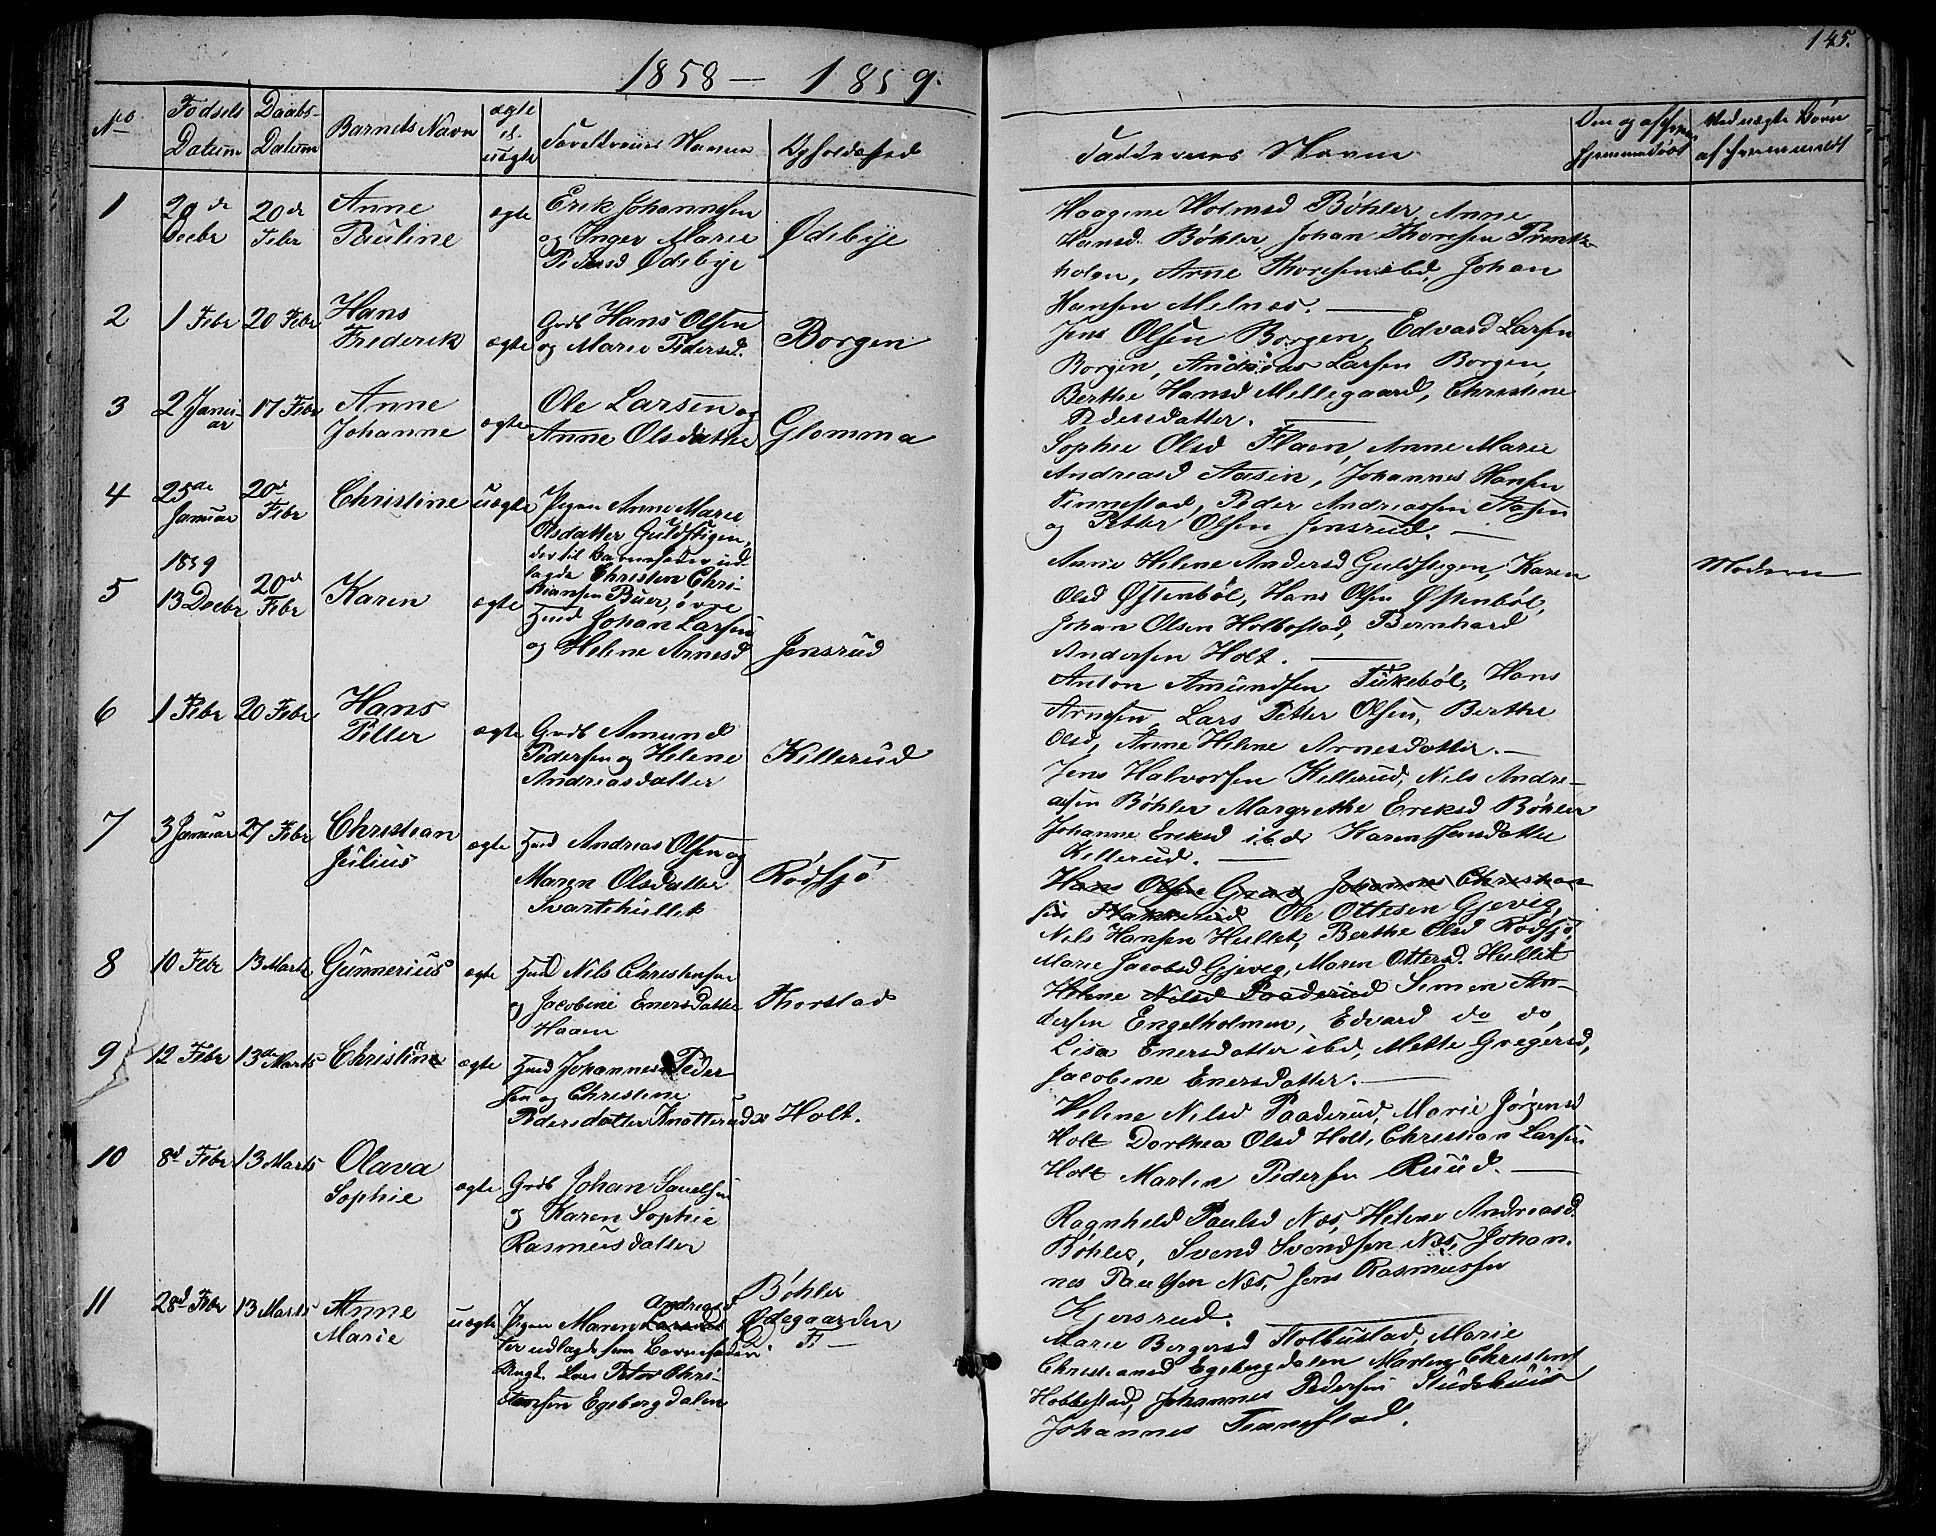 145.
1858 — 1859.
No
Fødsels Datum
Daabs-Datum
Barnets Navn
ægte el. uægte
Forældrenes Navne
Opholdssted
Faddernes Navne
Ved uægte Børn
af hvem meldt
1
20de Decbr
20de Febr
Anne Pauline
ægte
Erik Johannesen
og Inger Marie
Pedersd Ødebye
Ødebye
Haagine Holmsd Bøhler, Anne
Hansd. Bøhler, Johan Thoresen
Arne Thoresen ibd, Johan
Hansen Melnæs. —
2
1 Febr
20 Febr
Hans Frederik
ægte
Grdb Hans Olsen
og Marie Pedersd.
Borgen
Jens Olsen Borgen, Edvard Larsen
Borgen, Andreas Larsen Borgen,
Berthe Hansd Mellegaard, Christine
Pedersdatter. —
3
2 Januar
17 Febr
Anne Johanne
ægte
Ole Larsen og
Anne Olsdatter
Glomma
Sophie Olsd Flaen, Anne Marie
Andreasd Aasen, Johannes Hansen
Tennestad, Peder Andreassen Aasen
og Petter Olsen Jensrud. —
4
25de Januar 1859
20d Febr
Christine
uægte
Pigen Anne Marie
Olsdatter Guldstigen,
der til Barnefader ud-
lagde Christen Chri-
stiansen Buer, øvre
Anne Helene Andersd Guldstigen, Karen
Olsd Østenbøl, Hans Olsen Østenbøl,
Johan Olsen Holbøstad, Bernhard
Andersen Holt. —
Moderen
5
13 Decbr
20d Febr
Karen
ægte
Hmd Johan Larsen
og Helene Arnesd
Jensrud
Anton Amundsen Tukebøl, Hans
Arnesen, Lars Petter Olsen, Berthe
Olsd, Anne Helene Arnesdatter. —
6
1 Febr
20 Febr
Hans Petter
ægte
Grdb Amund
Pedersen og Helene
Andreasdatter
Killerud
Jens Halvorsen Killerud, Nils Andre-
asen Bøhler Margrethe Eriksd Bøhler
Johanne Eriksd ibd Karen Jensdatter
Killerud. —
7
3 Januar
27 Febr
Christian Julius
ægte
Hmd Andreas Olsen og
Maren Olsdatter
Svartehullet
Rødsjø
Ole Ottesen Gjeveg,
Nils Hansen Hullet, Berthe Olsd Rødsjø,
Marie Jacobsd Gjeveg, Maren Ottersd. Hullet
8
10 Febr
13 Marts
Gunnerius
ægte
Hmd Nils Christensen
og Jacobine Enersdatter
Haaen
Thorstad
Helene Nilsd Paaderud Simen An-
dersen Engelholmen, Edvard do do,
Lisa Enersdatter ibd, Mette Gregersd,
Jacobine Enersdatter. —
9
12 Febr
13de Marts
Christine
ægte
Hmd Johannes Peder-
sen og Christine
Pedersdatter Knatterud
Holt.
Helene Nilsd Paaderud, Marie Jørgensd
Holt Dorthea Olsd Holt, Christian Larsen
Holt Martin Pedersen Ruud. —
10
8d Febr
13 Marts
Olava Sophie
ægte
Grdb Johan
og Karen Sophie
Rasmusdatter
Bøhler
Ragnhild Paulsd Næs, Helene Andreasd.
Bøhler, Svend Svendsen Næs, Johan-
nes Paulsen Næs, Jens Rasmussen
Kjersrud.
11
28d Febr
13 Marts
Anne Marie
uægte
Pigen Maren Andreasd
ter udlagde som Barnefader
Ungk. Lars Peter Chri-
stensen Egebergdalen
Ødegaarden
Marie Bergersd Holbustad, Marie
Christiansd Egebergdalen Martin Christens
Hobbestad, Johannes Pedersen
Johannes Tennestad.